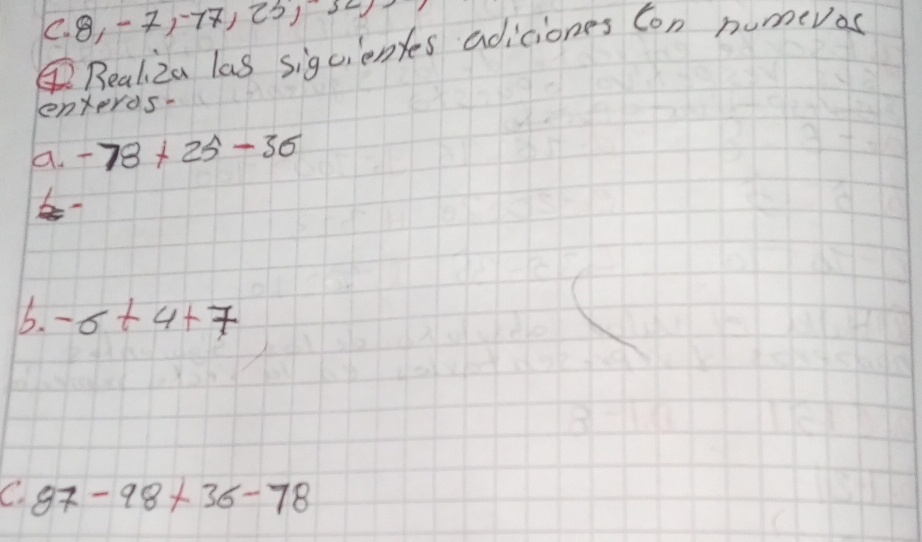 C. 8, -7, -77, 25, -32,
4. Realiza las siguientes adiciones con numeros
enteros.
a. -78 + 25 - 36
b. -6 + 4 + 7
c. 87 - 98 + 36 - 78